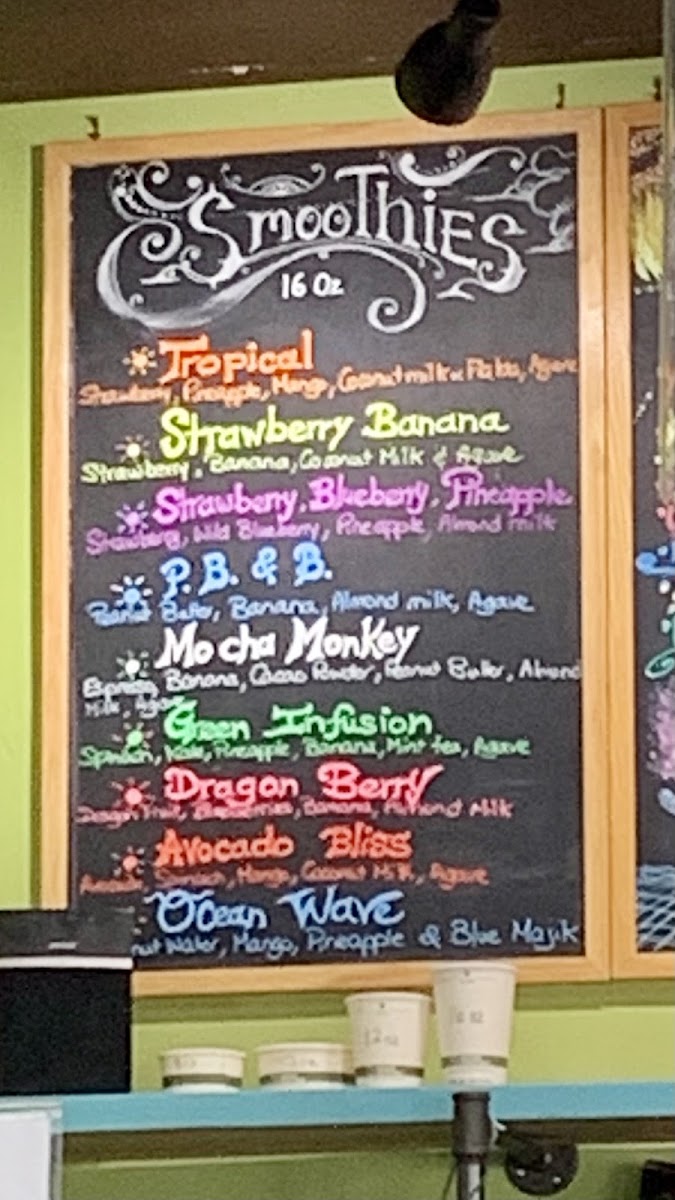 SmooThiES
16 Oz
Tropical
Strawberry, Pineapple, Mango, Coconut milk & Flakes, Agave
Strawberry Banana
Strawberry, Banana, Coconut Milk & Agave
Strawberry, Blueberry, Pineapple
Strawberry, Wild Blueberry, Pineapple, Almond milk
P.B. & B.
Peanut Butter, Banana, Almond milk, Agave
Mocha Monkey
Espresso, Banana, Cacao Powder, Peanut Butter, Almond
Milk, Agave
Green Infusion
Spinach, Kale, Pineapple, Banana, Mint tea, Agave
Dragon Berry
Dragon Fruit, Blueberries, Banana, Almond Milk
Avocado Bliss
Avocado, Spinach, Mango, Coconut Milk, Agave
Ocean Wave
nut Water, Mango, Pineapple & Blue Majik
12 oz
16 oz